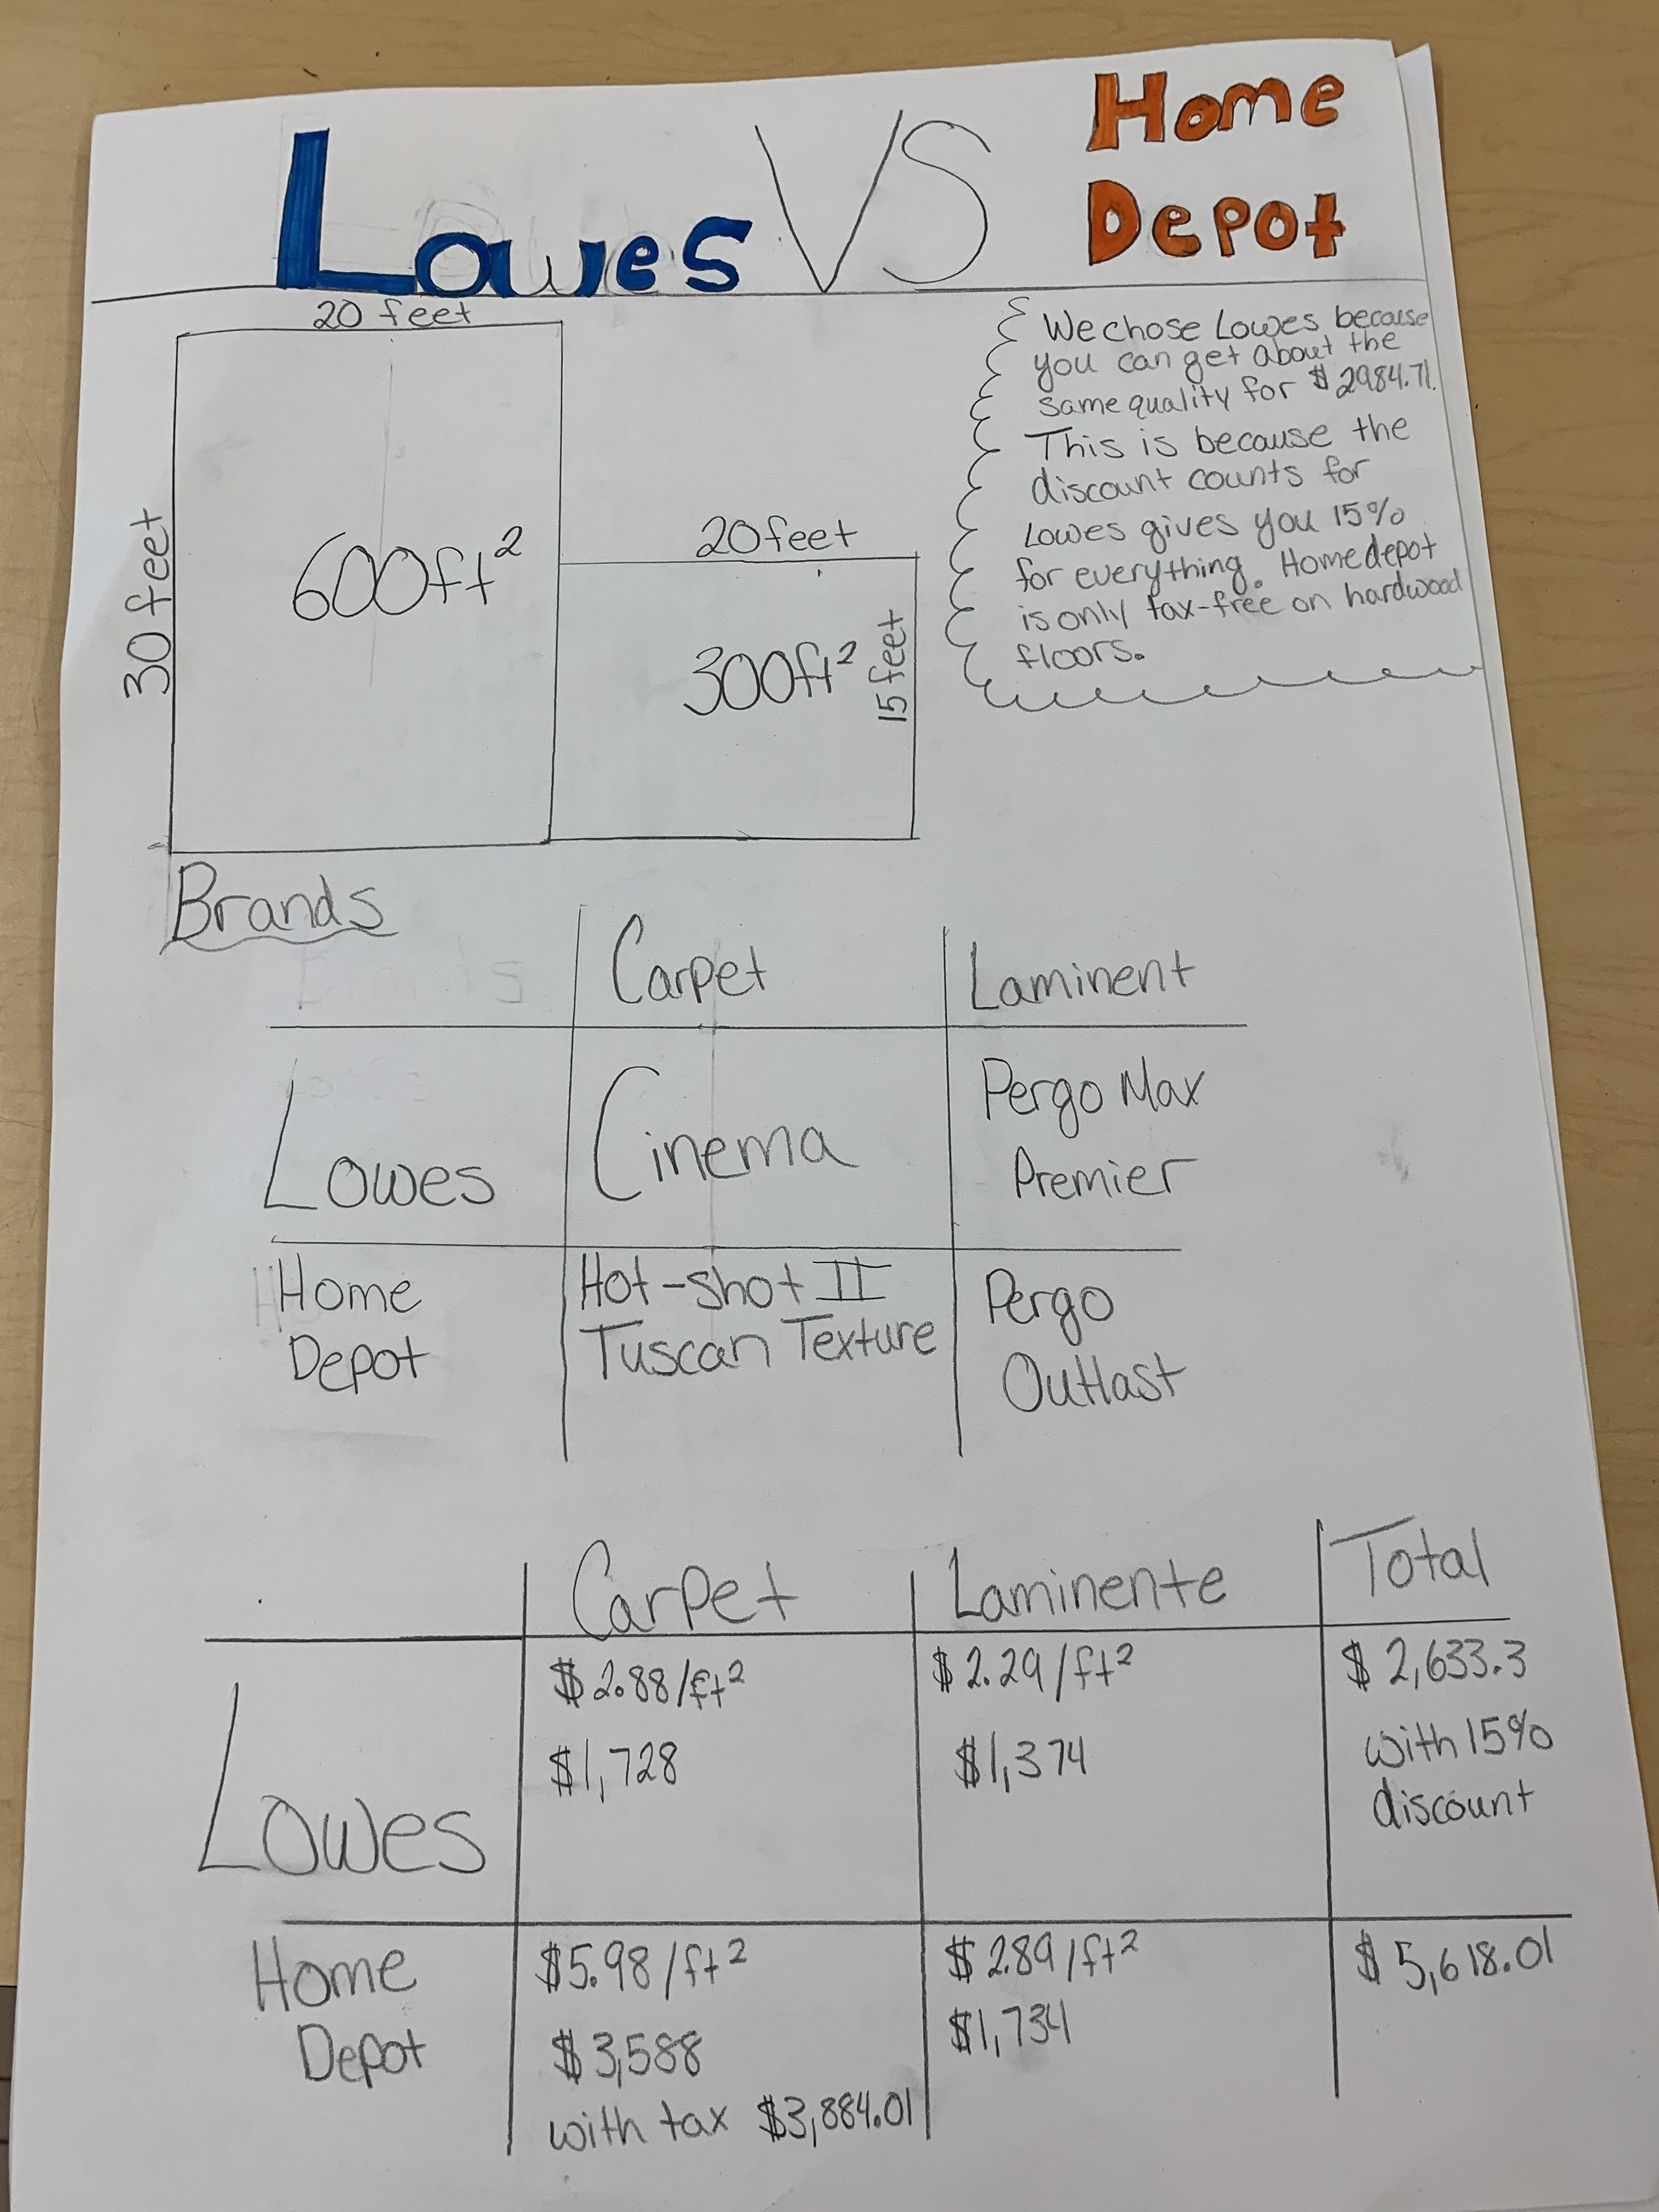 Lowes VS Home Depot
20 feet
30 feet
600ft²
20feet
300ft²
15 feet
We chose Lowes because
you can get about the
same quality for $2984.71.
This is because the
discount counts for
Lowes gives you 15%
for everything. Homedepot
is only tax-free on hardwood
floors.
Brands
Carpet Laminent
Lowes Cinema Pergo Max
Premier
Home Hot-shot II Pergo
Depot Tuscan Texture Outlast
Carpet Laminente Total
Lowes $2.88/ft² $2.29/ft² $2,633.3
$1,728 $1,374 with 15%
discount
Home $5.98/ft² $2.89/ft² $5,618.01
Depot $3,588 $1,734
with tax $3,884.01